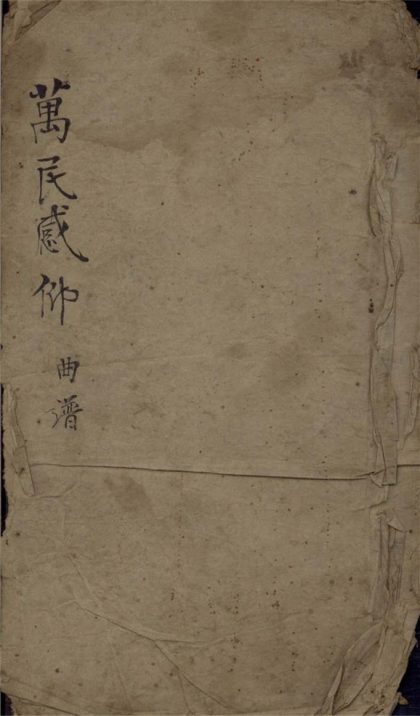 萬民感仰
曲譜